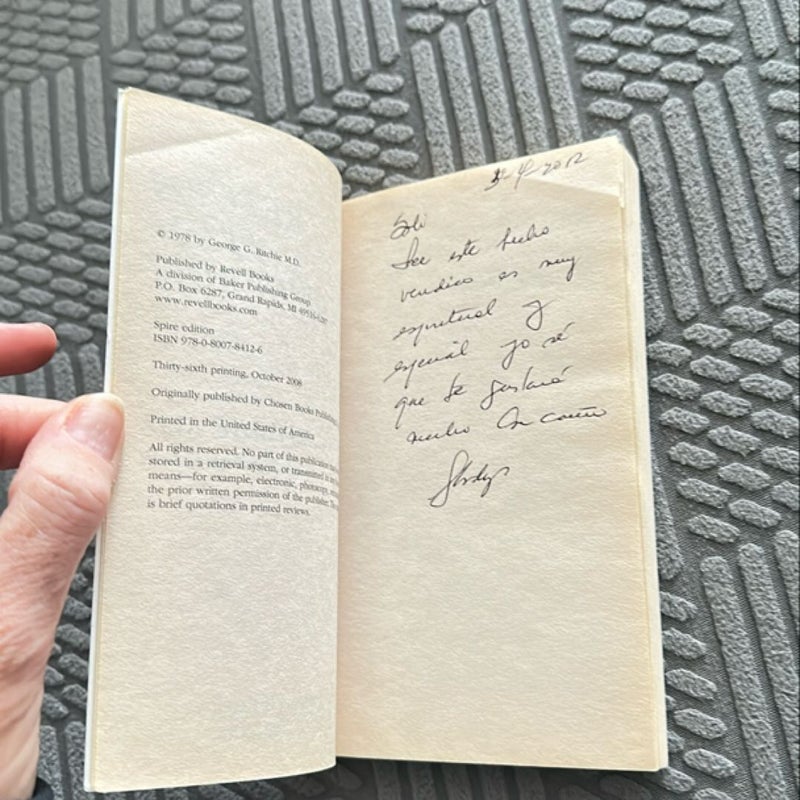 © 1978 by George G. Ritchie M.D.
Published by Revell Books
A division of Baker Publishing Group
P.O. Box 6287, Grand Rapids, MI 49516-6287
www.revellbooks.com
Spire edition
ISBN 978-0-8007-8412-6
Thirty-sixth printing, October 2008
Originally published by Chosen Books
Printed in the United States of America
All rights reserved. No part of this publication
stored in a retrieval system, or transmitted in
means—for example, electronic, photocopy,
the prior written permission of the publisher.
is brief quotations in printed reviews.
4-2012
este
es muy
y
especial yo sé
que te gustará
mucho con cariño
Gladys